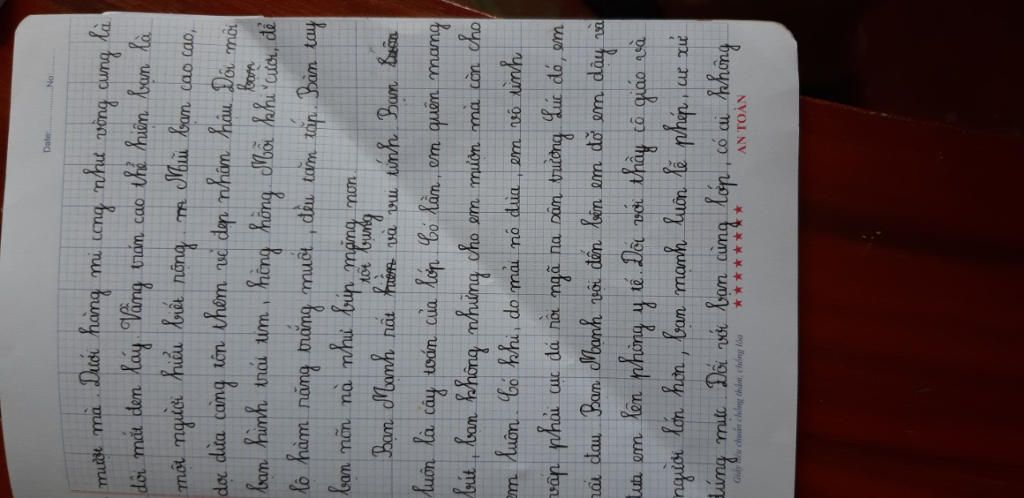 Date: No
mười mà. Dưới hàng mi cong như vòng cung là
đôi mắt đen láy. Vầng trán cao thể hiện bạn là
một người hiểu biết rộng. Mũi bạn cao cao,
dọc dừa càng tôn thêm vẻ đẹp nhân hậu. Đôi môi
bạn hình trái tim, hồng hồng. Mỗi khi bạn cười, để
lộ hàm răng trắng muốt, đều tăm tắp. Bàn tay
bạn nõn nà như búp măng non.
Bạn Mạnh rất tốt bụng và vui tính. Bạn
luôn là cây toán của lớp. Có lần, em quên mang
bút, bạn không những cho em mượn mà còn cho
em luôn. Có khi, do mải nô đùa, em vô tình
vấp phải cục đá rồi ngã ra sân trường. Lúc đó, em
rất đau. Bạn Mạnh vội đến bên em đỡ em dậy và
đưa em lên phòng y tế. Đối với thầy cô giáo và
người lớn hơn, bạn mạnh luôn lễ phép, cư xử
đúng mực. Đối với bạn cùng lớp, có ai không
Giấy tiêu chuẩn chống thấm, chống lóa ★★★★★★★★ AN TOÀN